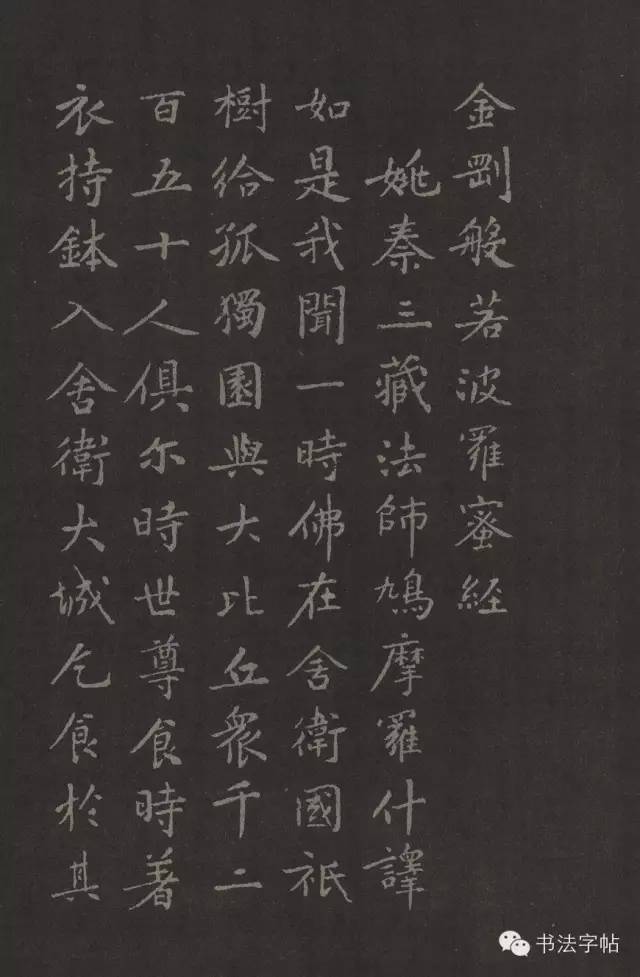 金剛般若波羅蜜経
姚秦三藏法師鳩摩羅什譯
如是我聞一時佛在舍衛國祇
樹給孤獨園與大比丘衆千二
百五十人俱尔時世尊食時著
衣持鉢入舍衛大城乞食於其
书法字帖